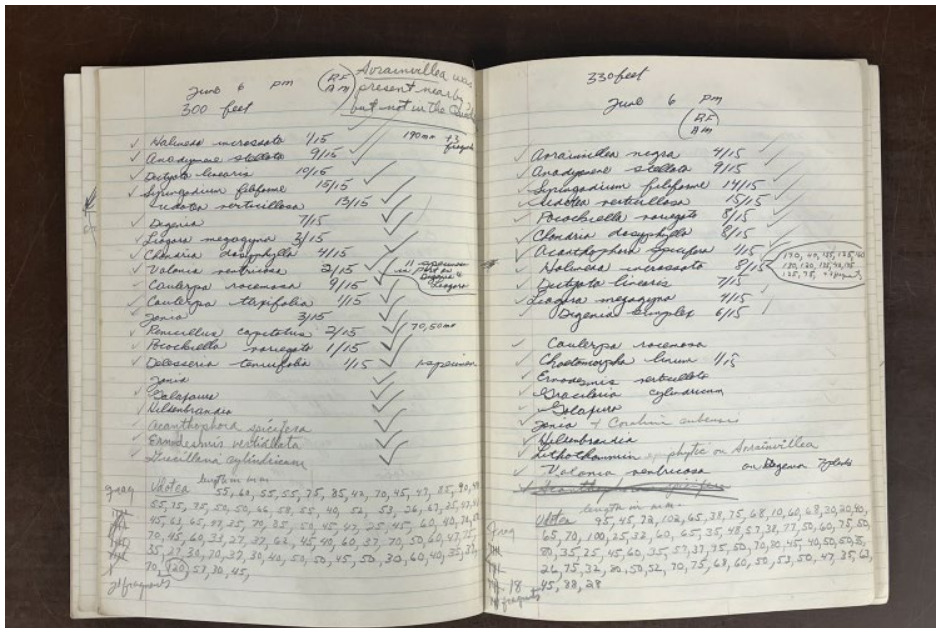 June 6 pm
300 feet
Avrainvillea was
present nearby
but not in the
Halimeda incrassata 1/15 190mm +3
Anadymene stellata 9/15
Dictyota linearis 10/15
Syringodium filiforme 15/15
Udotea verticillosa 13/15
Digenia 7/15
Liagora megagyna 3/15
Chondria dasyphylla 4/15
Valonia ventricosa 2/15
11 specimen
in part on
Digenia &
Liagora
Caulerpa racemosa 9/15
Caulerpa taxifolia 1/15
Jania 3/15
Penicillus capitatus 2/15 70,50mm
Pocockiella variegata 1/15
Delesseria tenuifolia 1/15 1 specimen
Jania
Galaxaura
Hildenbrandia
Acanthophora spicifera
Ernodesmis verticillata
Gracillaria cylindricum
length in mm
Udotea 55, 60, 55, 55, 75, 85, 42, 70, 45, 47, 85, 90,
55, 75, 75, 50, 50, 66, 58, 55, 40, 52, 53, 26, 67, 35, 47,
45, 63, 65, 47, 35, 70, 85, 50, 45, 47, 25, 45, 60, 40, 70,
70, 45, 60, 33, 27, 37, 62, 45, 40, 60, 37, 70, 50, 60, 47, 75,
35, 27, 30, 70, 37, 30, 40, 50, 50, 45, 50, 30, 60, 40, 35, 37,
70, 120, 53, 30, 45,
21 fragments
330 feet
June 6 pm
Avrainvillea negra 4/15
Anadymene stellata 9/15
Syringodium filiforme 14/15
Udotea verticillosa 15/15
Pocockiella variegata 8/15
Chondria dasyphylla 8/15
Acanthophora spicifera 1/15
Halimeda incrassata 8/15
170, 40, 135, 125, 120
120, 120, 135, 40, 115
125, 75,
Dictyota linearis 7/15
Liagora megagyna 4/15
Digenia simplex 6/15
Caulerpa racemosa
Chaetomorpha linum 1/15
Ernodesmis verticillata
Gracilaria cylindricum
Galaxura
Jania + Corallina cubensis
Hildenbrandia
Lithothamnium epiphytic on Avrainvillea
Valonia ventricosa on Digenia
Acanthophora spicifera
length in mm.
Udotea 95, 45, 72, 102, 65, 38, 75, 68, 10, 60, 68, 30, 20, 40,
65, 70, 100, 25, 32, 60, 65, 35, 48, 57, 38, 77, 50, 60, 75, 50,
80, 35, 25, 45, 60, 35, 57, 37, 75, 50, 70, 80, 45, 40, 50, 50, 85,
26, 75, 32, 80, 50, 52, 70, 75, 68, 60, 50, 53, 50, 47, 35, 63,
45, 88, 28